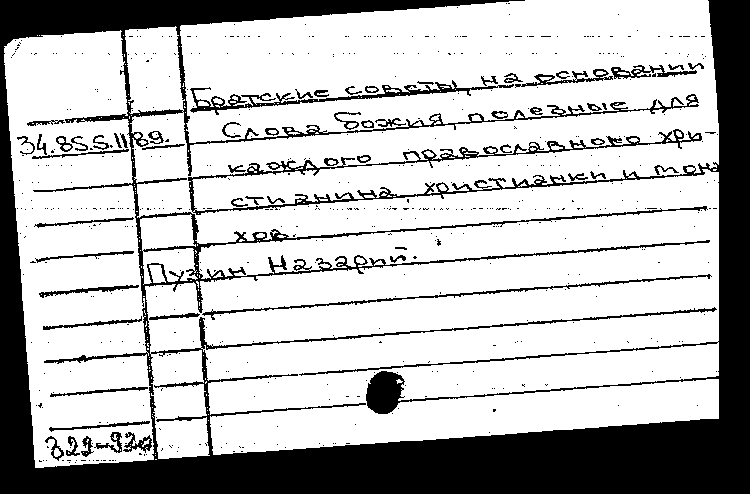 Братские советы, на основании
34.85.5.11/89. Слова Божия, полезные для
каждого православного хри-
стианина, христианки и мона
хов.
Пузин, Назарий.
329-920